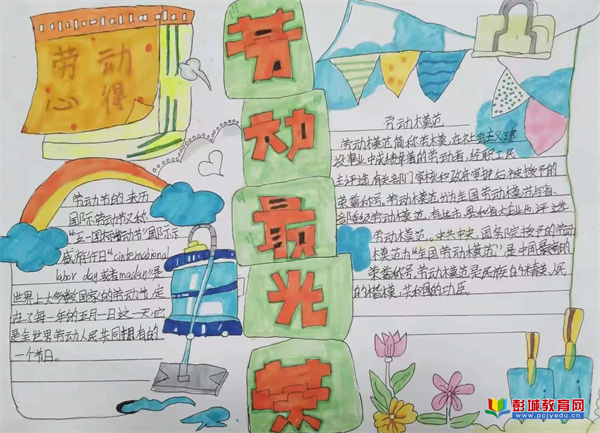 劳动
心得
劳动最光荣
劳动节的来历
国际劳动节又称
"五一国际劳动节"国际示
威游行日"(international
labor day或者mayday)"是
世界上大多数国家的劳动节,定
在了每一年的五月一日这一天,它
是全世界劳动人民共同拥有的
一个节日。
劳动模范
劳动模范简称劳模,在社会主义建
设事业中成绩卓著的劳动者,经职工民
主评选,有关部门审核和政府审批后被授予的
荣誉称号,劳动模范分为全国劳动模范与省、
部委级劳动模范,有些市、县和大企业也评选
劳动模范。中共中央、国务院授予的劳动
模范为"全国劳动模范"是中国最高的
荣誉称号,劳动模范是民族的精英,人民
的楷模,共和国的功臣。
彭城教育网
www.pcjyedu.cn